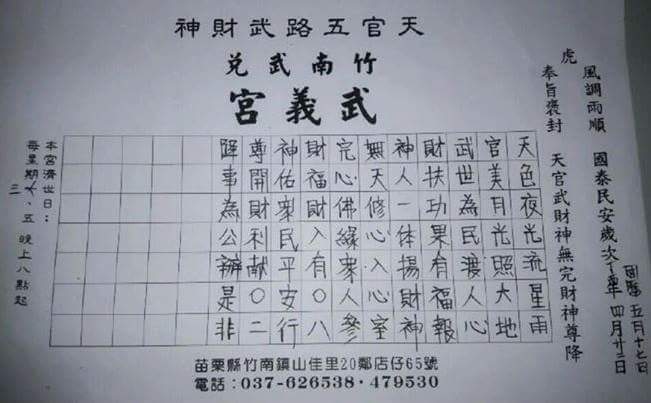 天官五路武財神
竹南武兌
武義宮
虎
風調雨順 國泰民安歲次丁酉年
國曆五月十七日
四月廿二日
奉旨褒封 天官武財神無完財神尊降
天色夜光流星雨
官美月光照大地
武世為民渡人心
財扶功果有福報
神人一体揚財神
無天修心入心室
完心佛緣眾人參
財福財入有〇八
神佑眾民平安行
尊開財利献〇二
降事為公辦是非
本宮濟世日：
每星期三、五 晚上八點起
苗栗縣竹南鎮山佳里20鄰店仔65號
電話：037-626538·479530